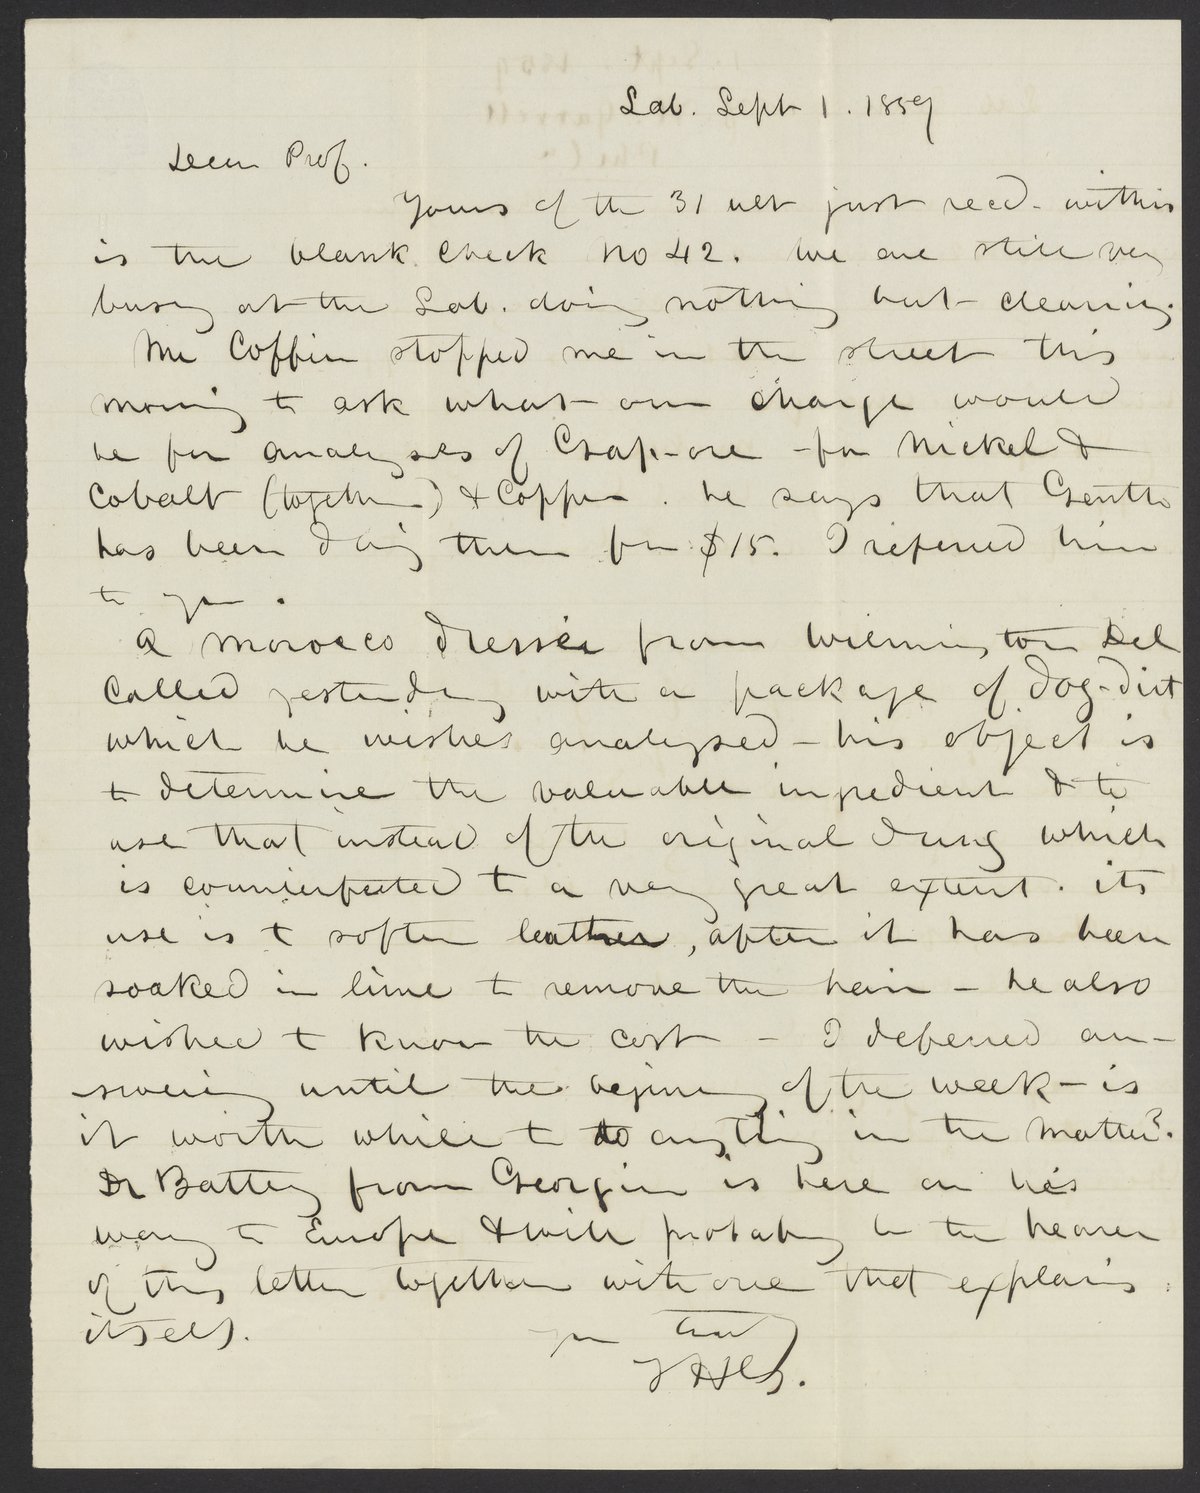 Lab. Sept 1. 1859
Dear Prof.
Yours of the 31 ult just recd. within
is the blank check No 42. We are still very
busy at the Lab. doing nothing but cleaning.
Mr Coffin stopped me in the street this
morning to ask what our charge would
be for analyses of Gap-ore - for Nickel &
Cobalt (together) & Copper. he says that Genth
has been doing them for $15. I referred him
to you.
A morocco dresser from Wilmington Del
called yesterday with a package of dog-dirt
which he wishes analyzed - his object is
to determine the valuable ingredient & to
use that instead of the original dung which
is counterfeited to a very great extent. its
use is to soften leather, after it has been
soaked in lime to remove the hair - he also
wished to know the cost - I deferred an-
-swering until the begining of the week - is
it worth while to do anything in the matter?
Dr Battey from Georgia is here on his
way to Europe & will probably be the bearer
of this letter together with one that explains
itself.
yours truly